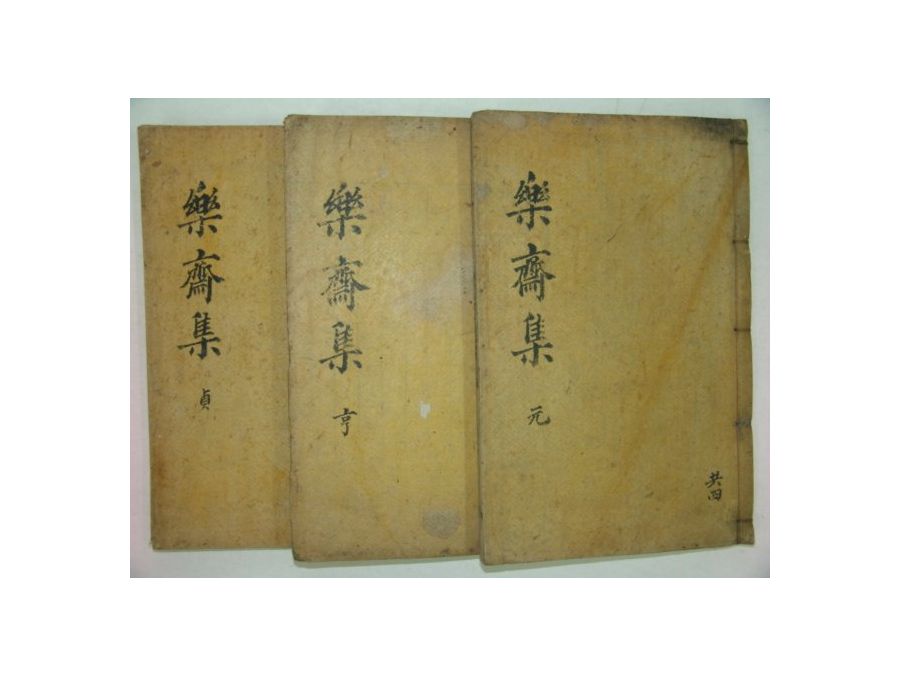 樂齋集 元
共四
樂齋集 亨
樂齋集 貞